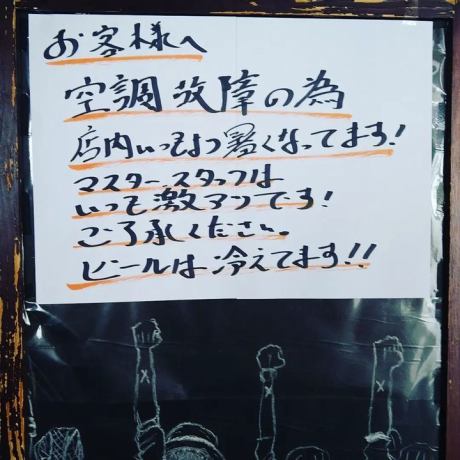 お客様へ
空調故障の為
店内いつもより暑くなってます!
マスタースタッフは
いつも激アツです!
ご了承ください。
ビールは冷えてます!!
X
X
X